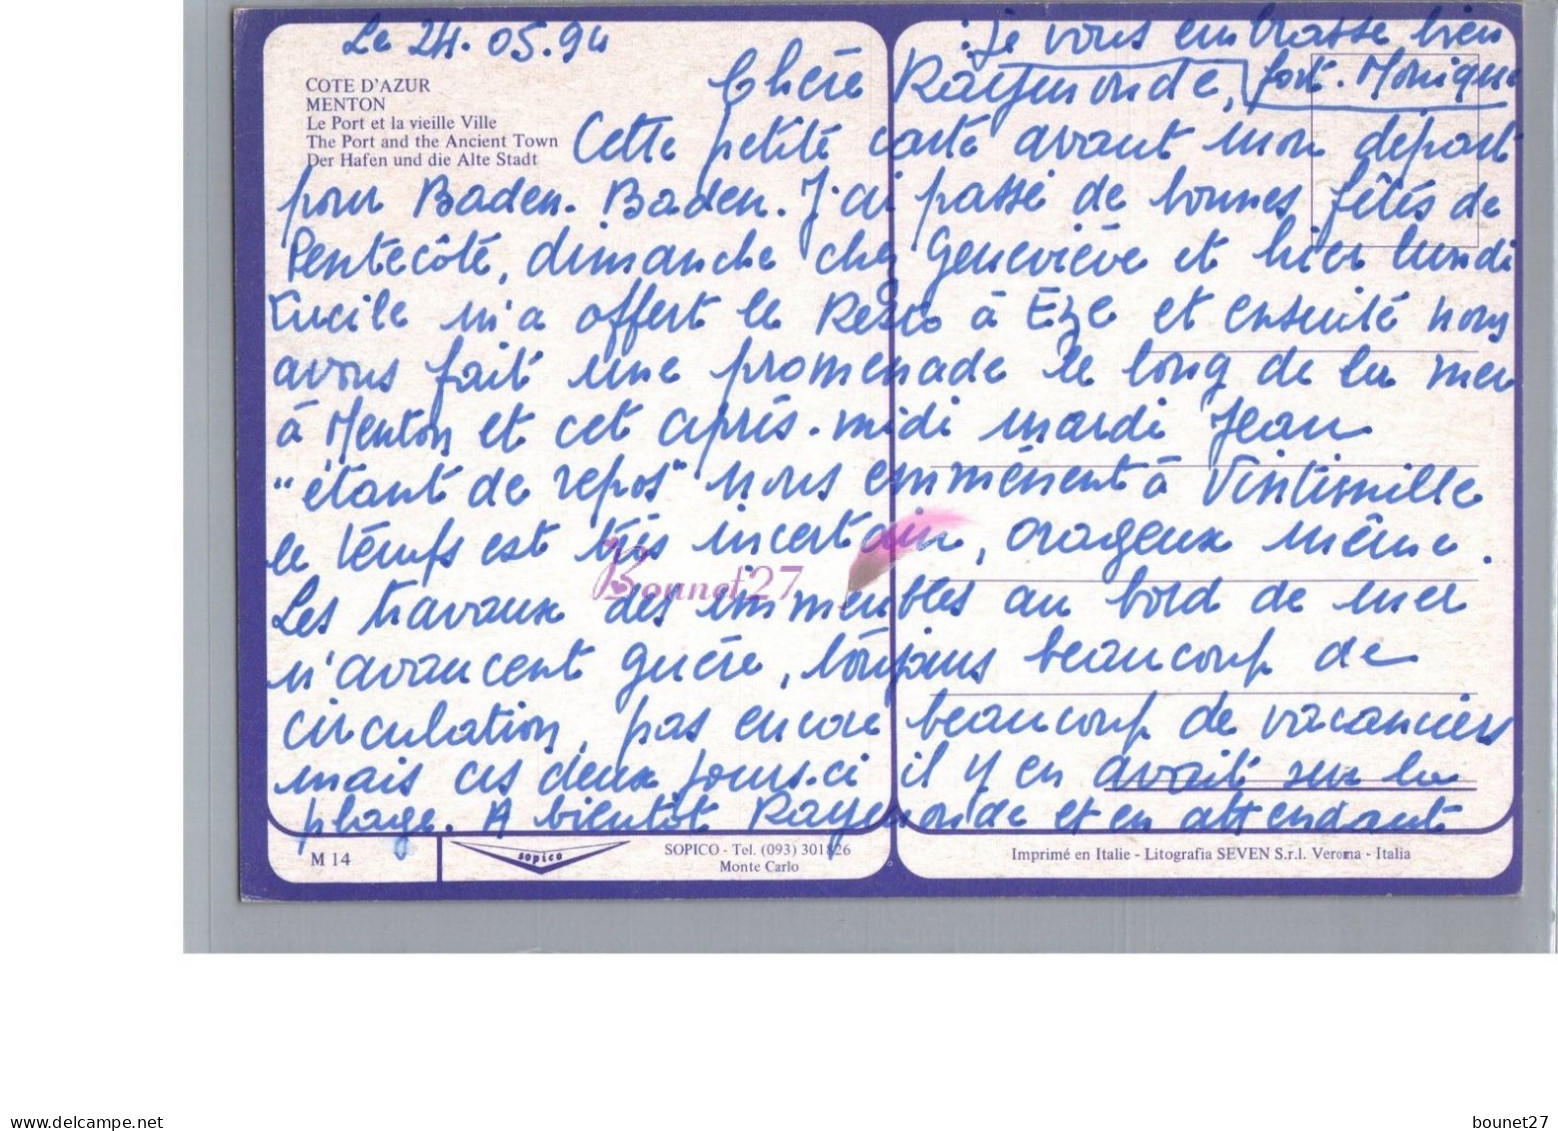 Le 24.05.94
: Je vous embrasse bien
fort. Monique
COTE D'AZUR
MENTON
Le Port et la vieille Ville
The Port and the Ancient Town
Der Hafen und die Alte Stadt
Chère Raymonde,
Cette petite carte avant mon départ
pour Baden-Baden. J'ai passé de bonnes fêtes de
Pentecôte, dimanche chez Geneviève et hier lundi
Lucile m'a offert le Resto à Eze et ensuite nous
avons fait une promenade le long de la mer
à Menton et cet après-midi mardi Jean
"étant de repos" nous emmènent à Vintimille
le temps est très incertain, orageux même.
Les travaux des immeubles au bord de mer
n'avancent guère, toujours beaucoup de
circulation, pas encore beaucoup de vacanciers
mais ces deux jours-ci il y en avait sur la
plage. A bientôt Raymonde et en attendant
Bounet27
M 14
sopico
SOPICO - Tel. (093) 301826
Monte Carlo
Imprimé en Italie - Litografia SEVEN S.r.l. Verona - Italia
delcampe.net
bounet27